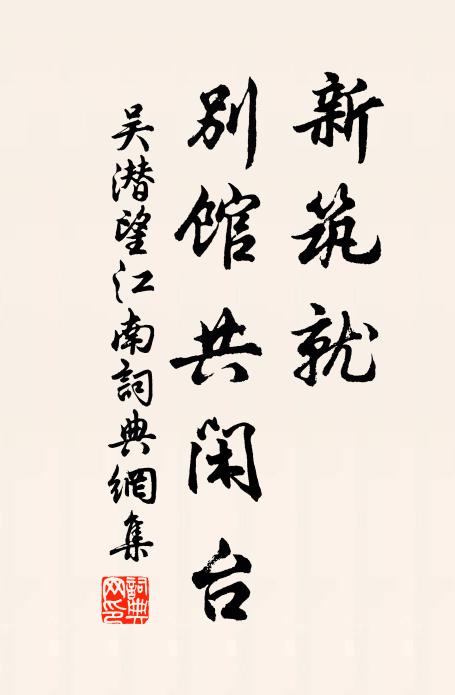 新筑就
别馆共闲台
吴潜望江南詞典網集
詞典网印